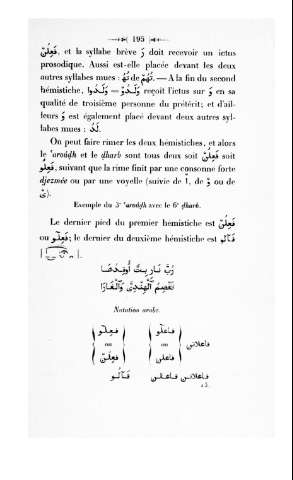 195
فَعِلُنْ, et la syllabe brève رَ doit recevoir un ictus
prosodique. Aussi est-elle placée devant les deux
autres syllabes mues : تُهُمْ de تُهُ. — A la fin du second
hémistiche, وَلَدُوْ — وَلَدُوا reçoit l'ictus sur وَ en sa
qualité de troisième personne du prétérit; et d'ail-
leurs وَ est également placé devant deux autres syl-
labes mues : لَدُ.
On peut faire rimer les deux hémistiches, et alors
le 'aroûḍh et le ḍharb sont tous deux soit فَعِلُنْ soit
فَعِلُو, suivant que la rime finit par une consonne forte
djezmée ou par une voyelle (suivie de ا, de وْ ou de
ىْ).
Exemple du 3e 'aroûḍh avec le 6e ḍharb.
Le dernier pied du premier hémistiche est فَعِلُنْ
ou فَعِلُو; le dernier du deuxième hémistiche est فَالُو
رُبَّ نَارٍ بِتُّ أَرْمُقُهَا
تَقْضِمُ ٱلْهِنْدِيَّ وَٱلْغَارَا
Notation arabe.
فاعلو فعلو
ou ou فاعلاتن
فاعلن فعلن
فاعلاتن فاعلن فَالُو